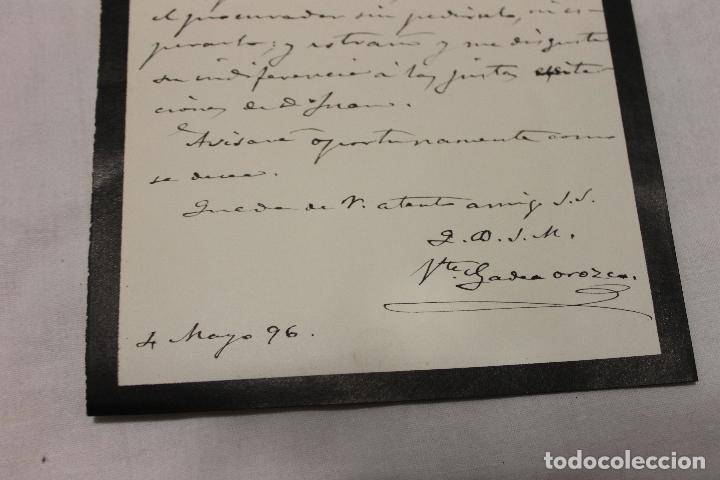 el procurador sin pedirselo, ni es-
perarlo; y estraño y me disgusta
su indiferencia á las justas
ciones de D. Juan.
Avisaré oportunamente como
se desea.
Queda de V. atento amigo S.S.
Q.B.S.M.
Vte. Gadea orozco.
4 Mayo 96.
todocoleccion.net